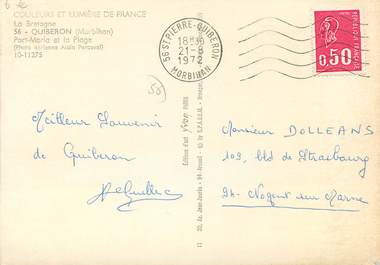 COULEURS ET LUMIÈRE DE FRANCE
La Bretagne
56 - QUIBERON (Morbihan)
Port-Maria et la Plage
(Photo Aérienne Alain Perceval)
10-11275
56 ST PIERRE-QUIBERON
18H
21-8
1972
MORBIHAN
RÉPUBLIQUE FRANÇAISE
0,50
POSTES
56
Meilleur Souvenir
de Quiberon
Editions d'art YVON PARIS
Monsieur DOLLEANS
109, bld de Strasbourg
94-Nogent sur Marne